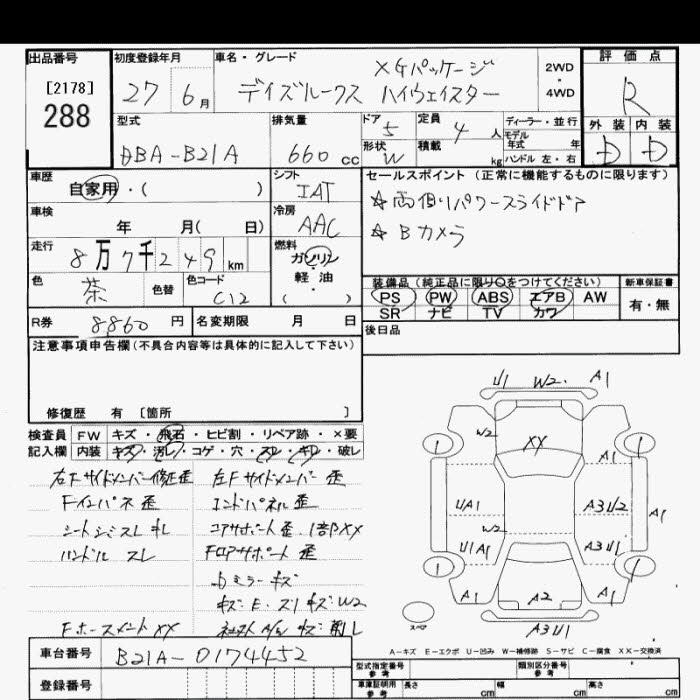 出品番号
[2178]
288
初度登録年月
27 6月
車名・グレード
XGパッケージ
デイズルークス ハイウェイスター
2WD
・
4WD
評価点
R
外装 内装
D D
型式
DBA-B21A
排気量
660 cc
ドア 5
形状 W
定員 4 人
積載 kg
ディーラー・並行
モデル
年式 年
ハンドル 左・右
車歴
自家用・( )
シフト
IAT
車検
年 月( 日)
冷房
AAC
走行
8万7千249 km
燃料
ガソリン
・
軽油
( )
色
茶
色替
色コード
C12
R券 8860円
名変期限 月 日
セールスポイント(正常に機能するものに限ります)
☆両側パワースライドドア
☆Bカメラ
装備品(純正品に限り○をつけてください)
PS PW ABS エアB AW
SR ナビ TV カワ
新車保証書
有・無
後日品
注意事項申告欄(不具合内容等は具体的に記入して下さい)
修復歴 有 [箇所 ]
検査員 FW キズ・飛石・ヒビ割・リペア跡・×要
記入欄 内装 キズ・汚レ・コゲ・穴・スレ・キレ・破レ
右Fサイドメンバー修正歪 左Fサイドメンバー歪
Fインパネ歪 エンドパネル歪
シートシミスレ コアサポート歪、1部XX
ハンドルスレ Fロアサポート歪
ミラーキズ
W2
Fホースメント XX
U1 W2 A1
W2
XX
A1
A1
UA1 A3U2
W2
U1A1 A3U1
A1 A2 A1
A3U1
スペア
A-キズ E-エクボ U-凹み W-補修跡 S-サビ C-腐食 XX-交換済
車台番号 B21A-0174452
登録番号
型式指定番号
参考
類別区分番号
参考
車庫証明用
参考
長さ cm 幅 cm 高さ cm